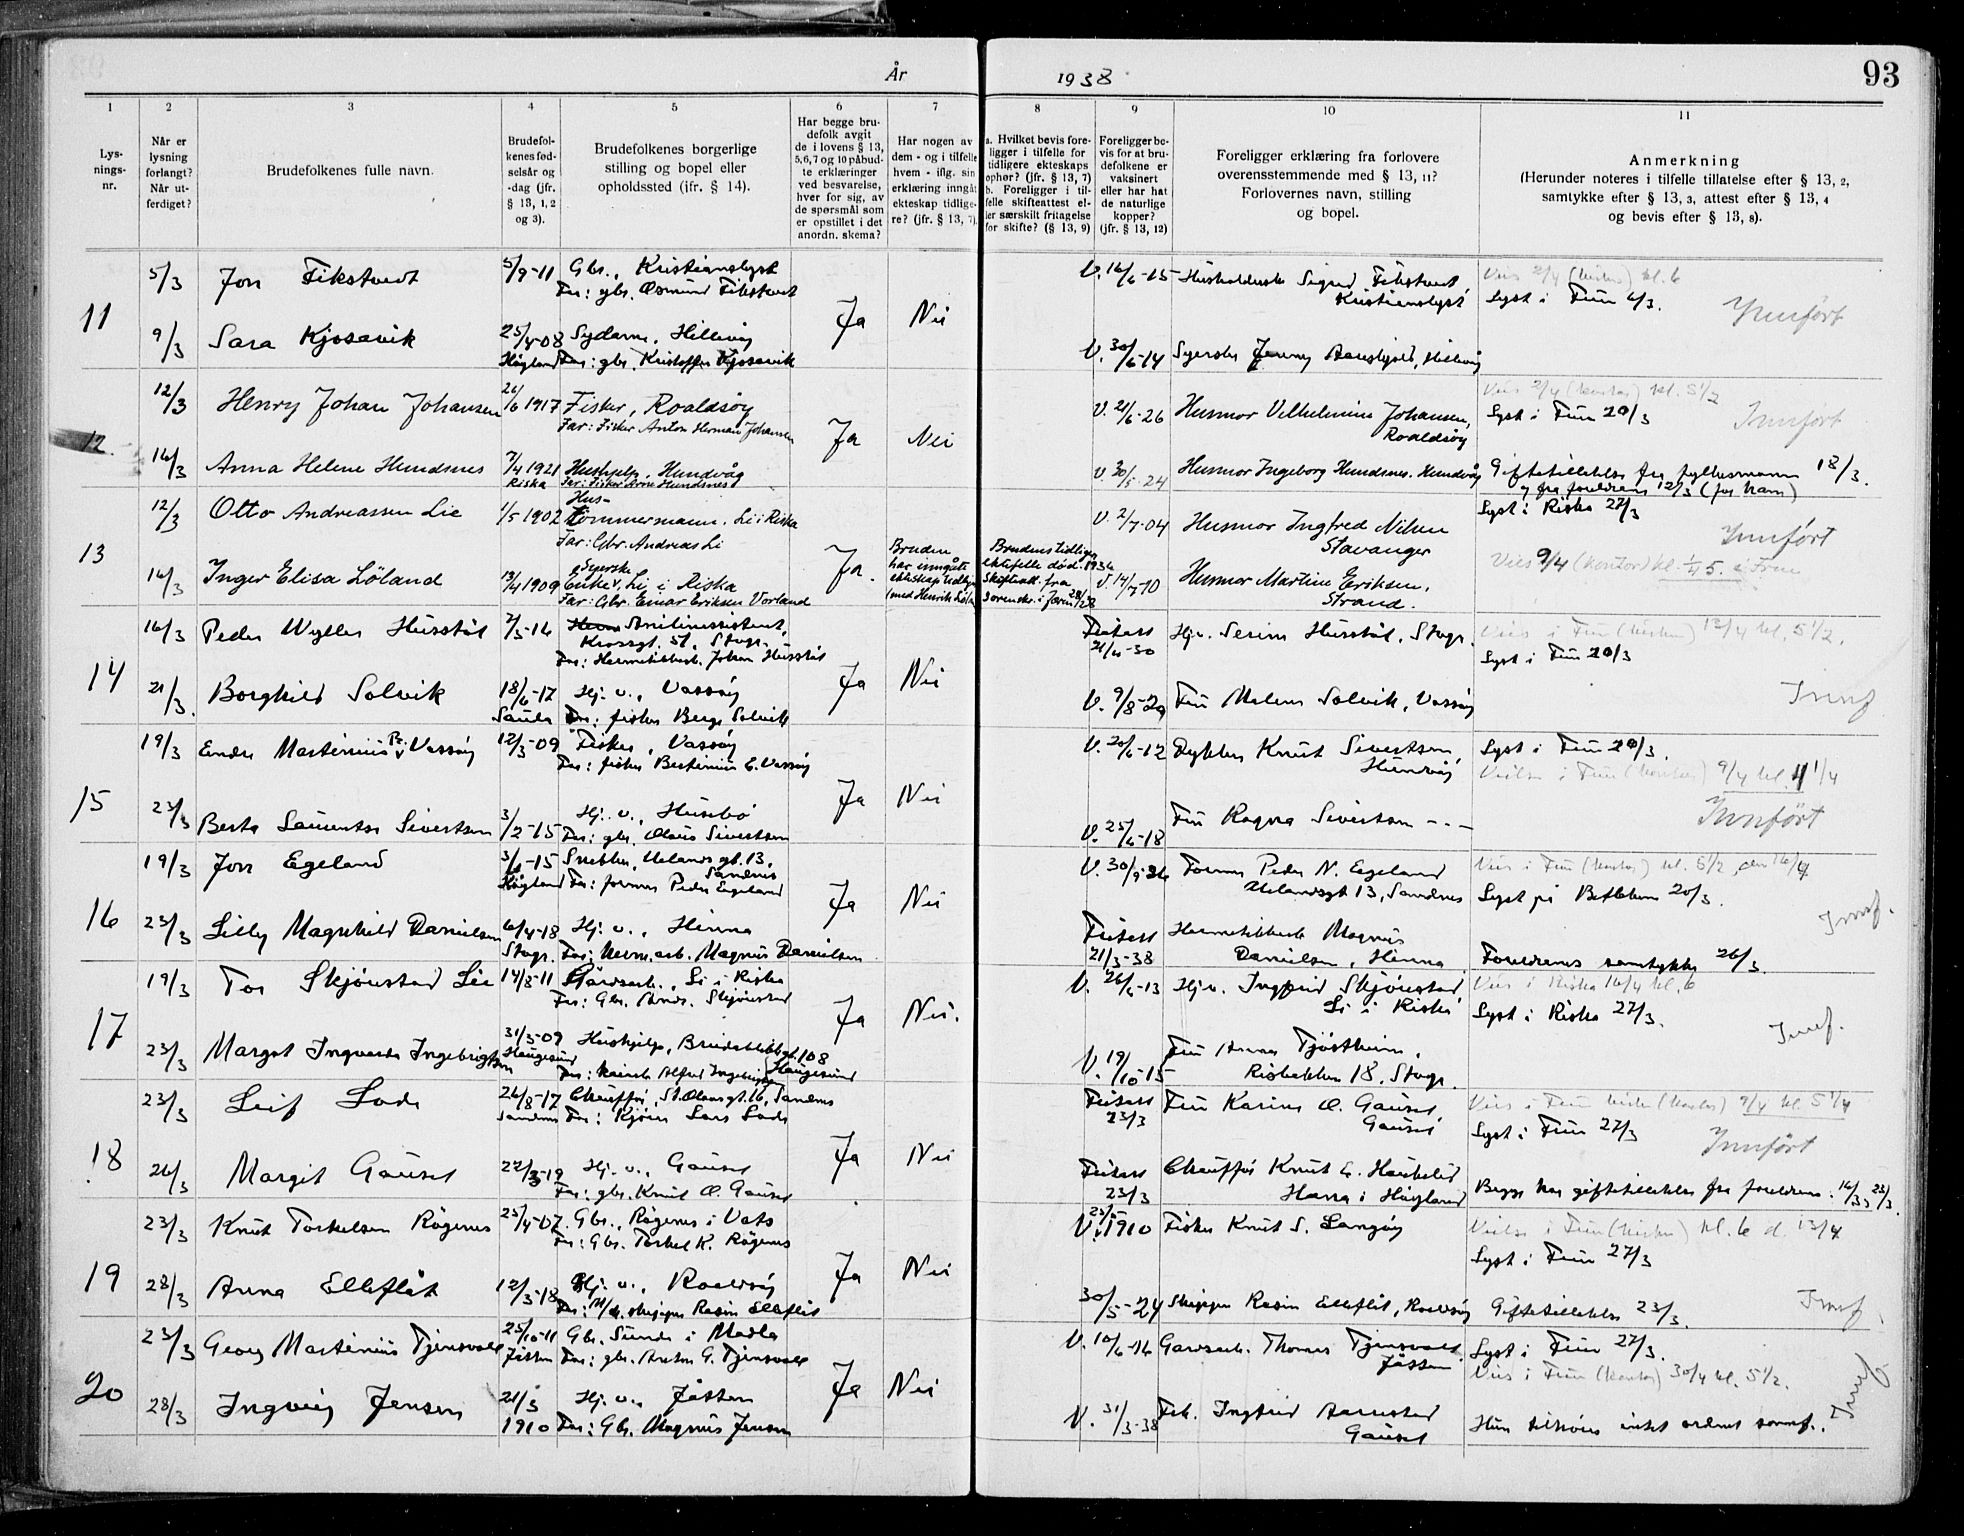 År 1938. 93
1 2 3 4 5 6 7 8 9 10 11
Lys-
nings-
nr.
Når er
lysning
forlangt?
Når ut-
ferdiget?
Brudefolkenes fulle navn.
Brudefol-
kenes fød-
selsår og
-dag (jfr.
§ 13, 1, 2
og 3).
Brudefolkenes borgerlige
stilling og bopel eller
opholdssted (jfr. § 14).
Har begge bru-
defolk avgit
de i lovens § 13,
5,6,7 og 10 påbud-
te erklæringer
ved besvarelse,
hver for sig, av
de spørsmål som
er opstillet i det
anordn. skema?
Har nogen av
dem - og i tilfelle
hvem - iflg. sin
erklæring inngått
ekteskap tidlige-
re? (jfr. § 13, 7).
a. Hvilket bevis fore-
ligger i tilfelle for
tidligere ekteskaps
ophør? (jfr. § 13, 7)
b. Foreligger i til-
felle skifteattest el-
ler særskilt fritagelse
for skifte? (§ 13, 9)
Foreligger be-
vis for at bru-
defolkene er
vaksinert
eller har hat
de naturlige
kopper?
(jfr. § 13, 12)
Foreligger erklæring fra forlovere
overensstemmende med § 13, 11?
Forlovernes navn, stilling
og bopel.
Anmerkning
(Herunder noteres i tilfelle tillatelse efter § 13, 2,
samtykke efter § 13, 3, attest efter § 13, 4
og bevis efter § 13, 8).
11
5/3 Jon Fikstvedt 5/9-11 Gbr., Kristianslyst
Far: gbr. Osmund Fikstvedt
Ja Nei
V. 16/6-15 Husholderske Sigrid Fikstvedt,
Kristianslyst
Vies 2/4 (kirken) kl. 6
Lyst i Frue 6/3. Innført
9/3 Sara Kjosavik 25/4-08 Sydame, Hillevåg
Høyland Far: gbr. Kristoffer Kjosavik
V. 30/6-14 Syerske Jenny Aanslyød, Hillevåg
12.
12/3 Henry Johan Johansen 26/6 1917 Fisker, Roaldsøy
Far: Fisker Anton Herman Johansen
Ja Nei
V. 21/6-26 Husmor Vilhelmine Johansen,
Roaldsøy
Vies 2/4 (kontor) kl. 5 1/2
Lyst i Frue 20/3 Innført
16/3 Anna Helene Hundsnes 7/4 1921 Hushjelp, Hundvåg
Riska Far: Fisker Arne Hundsnes
V. 30/5-24 Husmor Ingeborg Hundsnes. Hundvåg
Giftetillatelse fra fylkesmann 18/3.
og fra foreldrene 12/3 (for ham)
13
12/3 Otto Andreassen Lie 1/5 1902 Hus-
tømmermann. Li i Riska
Far: Gbr. Andreas Li
Ja.
V 2/7-04 Husmor Ingfred Nilsen
Stavanger
Lyst i Riska 27/3
Innført
16/3 Inger Elisa Löland 13/4 1909 Syerske
Enke v. Li i Riska
Far: Gbr. Einar Eriksen Vorland
Bruden
har inngått
ekteskap tidligere
(med Henrik Løland
Brudens tidligere
ektefelle død. 1936
Skifteatt. fra
sorenskr. i Jæren
V 14/7-10 Husmor Martine Eriksen,
Strand.
Vies 9/4 (kontor) kl. 1/4 5. i Frue
14
16/3 Peder Wyller Husstøl 7/3-16 Anilinassistent,
Krossgt. 51, Stvgr.
Far: Hermetikkarb. Johan Husstøl
Ja Nei
Friteks
21/6-30
Hj.v. Serine Husstøl, Stvgr.
Vies i Frue (kirken) 13/4 kl. 5 1/2.
Lyst i Frue 20/3
21/3. Borghild Solvik 18/6-17 Hj. v., Vassøy
Sauda Far: fisker Berge Solvik
V. 9/8-29 Fru Malene Solvik, Vassøy
Innf
15
19/3 Endre Martinius B. Vassøy 12/3-09 Fisker, Vassøy
Far: fisker Bertinius E. Vassøy
Ja Nei
V. 20/6-12 Dykker Knut Sivertsen,
Hundvåg
Lyst i Frue 20/3.
Vielse i Frue (kontor) 9/4 kl. 4 1/4
23/3 Berta Lauentse Sivertsen 3/2-15 Hj. v., Husebø
Far: gbr. Olaus Sivertsen
V. 25/6-18 Fru Ragna Sivertsen - - -
Innført
16
19/3 Jon Egeland 3/1-15 Snekker, Uelandsgt. 13,
Sandnes
Høyland Far: formann Peder Egeland
Ja Nei
V. 30/9-36 Formann Peder N. Egeland
Uelandsgt 13, Sandnes
Vies i Frue (kontor) kl. 5 1/2, den 16/4
Lyst på Betlehem 20/3.
23/3 Lilly Magnhild Danielsen 6/4-18 Hj. v., Hinna
Stvgr. Far: herm.arb. Magnus Danielsen
Friteks
21/3-38
Hermetikkarb Magnus
Danielsen, Hinna
Innf.
Foreldrenes samtykke 26/3.
17
19/3 Tor Skjørestad Lie 14/8-11 Gårdsarb., Li i Riska
Far: Gbr. Ands. Skjørestad
Ja Nei.
V. 26/6-13 Hj.v. Ingfrid Skjørestad
Li i Riska
Vies i Riska 16/4 kl. 6
Lyst i Riska 27/3.
Innf.
23/3 Margot Ingvarda Ingebrigtsen 31/3-09 Hushjelp, 108
Haugesund Haugesund
V. 19/10-15 Fru Anna Tjøstheim,
Risbakken 18, Stvgr.
18
23/3 Leif Lode 26/8-17 Chauffør, St. Olavsgt. 16, Sandnes
Sandnes Far: Kjører Lars Lode
Ja Nei
Friteks
23/3
Fru Karine O. Gausel,
Gausel
Vies i Frue kirke (kontor) 9/4 kl. 5 1/4
Lyst i Frue 27/3
Innført
26/3 Margit Gausel 22/3-19 Hj. v., Gausel
Far: gbr. Knut O. Gausel
Friteks
23/3
Chauffør Knut E. Haukelid
Hana i Høyland
Begge har giftetillatelse fra foreldrene. 16/3, 23/3.
19
23/3 Knut Torkelsen Røgenes 25/4-07. Gbr., Røgenes i Vats
Far: Gbr. Torkel K. Røgenes
Ja Nei
V. 1910 Fisker Knut S. Langøy
Vielse i Frue (kirken) kl. 6 d. 13/4
Lyst i Frue 27/3
28/3 Anna Elleflåt 12/3-18 Hj. v., Roaldsøy
Far: skipper Rasm Elleflåt
30/5-24 Skipper Rasm Elleflåt, Roaldsøy
Giftetillatelse 23/3. Innf
20
23/3 Georg Martinius Tjensvold 25/10-11 Gbr. Sunde i Madla
Jåtten Far: gbr. Anton G. Tjensvold
Ja Nei
V. 10/6-16 Gardsarb. Thomas Tjensvold.
Jåtten
Lyst i Frue 27/3.
Vies i Frue (kontor) 30/4 kl. 5 1/2.
28/3 Ingveig Jensen 21/3 1910 Hj. v., Jåtten
Far: Gbr. Magnus Jensen
V. 31/3-38 Frk. Ingfrid Aarrestad
Gausel
Hun tilhører intet ordnet samf. Innf